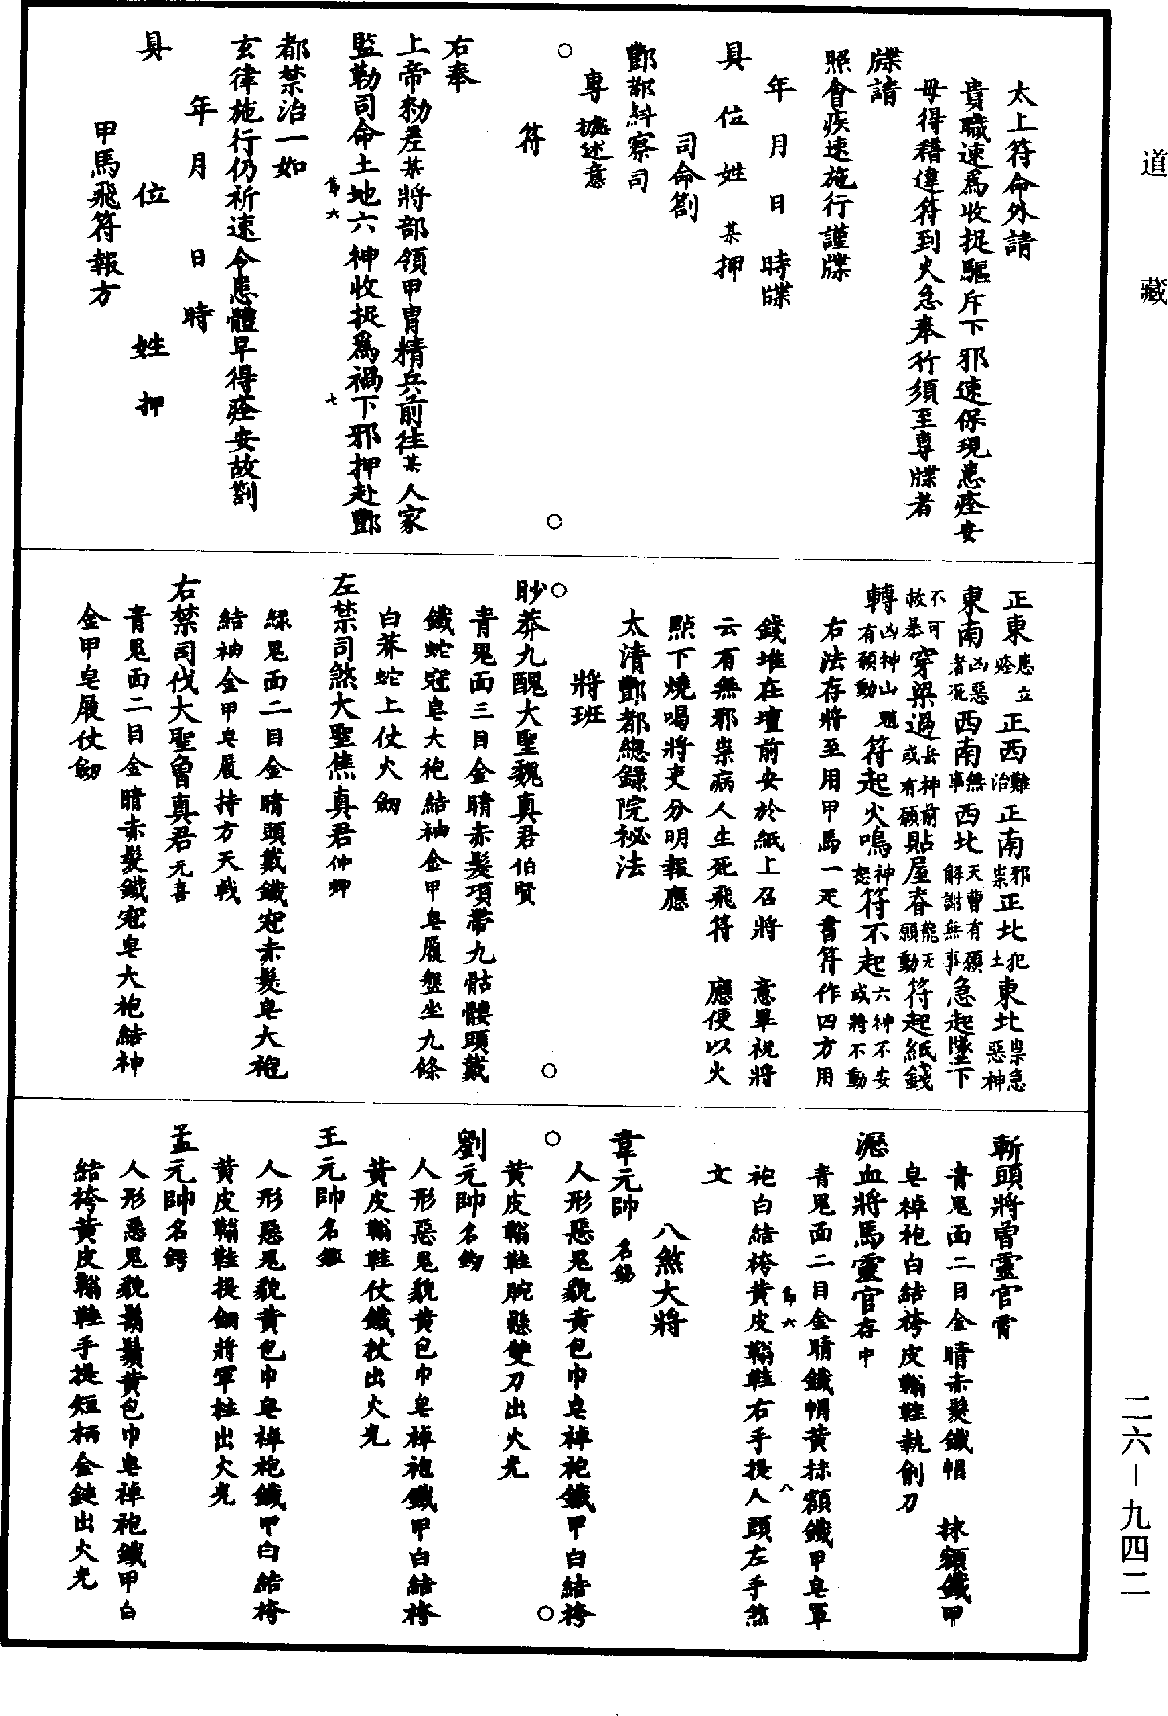 道藏
太上符命外請
貴職速爲收捉驅斥下邪速保現患痊安
毋得稽違符到火急奉行須至專牒者
牒請
照會疾速施行謹牒
年月日時牒
具位姓某押
司命劄
酆都糾察司
專據述意
符
右奉
上帝勑差某將部領甲冑精兵前往某人家
監勒司命土地六神收捉爲禍下邪押赴酆
第六
七
都禁治一如
玄律施行仍祈速令患體早得痊安故劄
年月日時
具位姓押
甲馬飛符報方
正東患立痊正西難治正南邪祟正北犯土東北祟急惡神
東南凶惡者死西南無事西北天曹有願解謝無事急起墜下
不可救暴穿梁過岳神前或有願貼屋脊龍无願動符起紙錢
轉凶神山魈有願動符起火鳴神怒符不起六神不安或將不動
右法存將至用甲馬一疋書符作四方用
錢堆在壇前安於紙上召將意畢祝將
云有無邪祟病人生死飛符應便以火
點下燒喝將吏分明報應
太清酆都總錄院祕法
將班
眇莽九醜大聖魏真君伯賢
青鬼面三目金睛赤髮項帶九骷髏頭戴
鐵蛇冠皂大袍結袖金甲皂履盤坐九條
白莽蛇上仗火劒
左禁司煞大聖焦真君仲卿
綠鬼面二目金睛頭戴鐵冠赤髮皂大袍
結袖金甲皂履持方天戟
右禁司伐大聖魯真君元喜
青鬼面二目金睛赤髮鐵冠皂大袍結神
金甲皂履仗劒
斬頭將曾靈官霄
青鬼面二目金睛赤髮鐵帽抹額鐵甲
皂棹袍白結袴皮鞝鞋執劊刀
瀝血將馬靈官存中
青鬼面二目金睛鐵帽黃抹額鐵甲皂軍
袍白結袴黃皮鞝鞋右手提人頭左手煞
第六
八
文
八煞大將
韋元帥
人形惡鬼貌黃包巾皂棹袍鐵甲白結袴
黃皮鞝鞋腕懸雙刀出火光
劉元帥
人形惡鬼貌黃包巾皂棹袍鐵甲白結袴
黃皮鞝鞋仗鐵杖出火光
王元帥
人形惡鬼貌黃包巾皂棹袍鐵甲白結袴
黃皮鞝鞋提銅將軍柱出火光
孟元帥名鍔
人形惡鬼貌鬍鬚黃包巾皂棹袍鐵甲白
結袴黃皮鞝鞋手提短柄金鎚出火光
二六－九四二